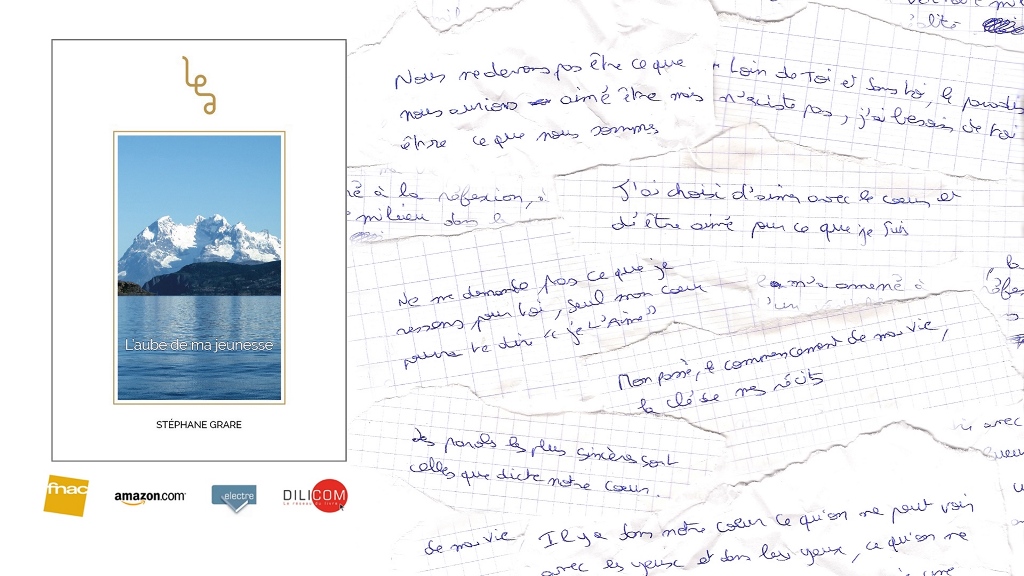 Les
L'aube de ma jeunesse
STÉPHANE GRARE
fnac
amazon.com
electre
DILICOM
Nous ne devons pas être ce que
nous aurions aimé être mais
être ce que nous sommes
Loin de Toi et sans toi, le paradis
n'existe pas, j'ai besoin de toi
é à la réflexion, à
milieu dans le
J'ai choisi d'aimer avec le coeur et
d'être aimé pour ce que je suis
Ne me demande pas ce que je
ressens pour toi, seul mon coeur
pourra te dire "je t'aime"
m'a amené à
Mon passé, le commencement de ma vie,
la clé de mes récits
des paroles les plus sincères sont
celles que dicte notre coeur.
avec
de ma vie
Il y a dans notre coeur ce qu'on ne peut voir
avec les yeux et dans les yeux, ce qu'on ne